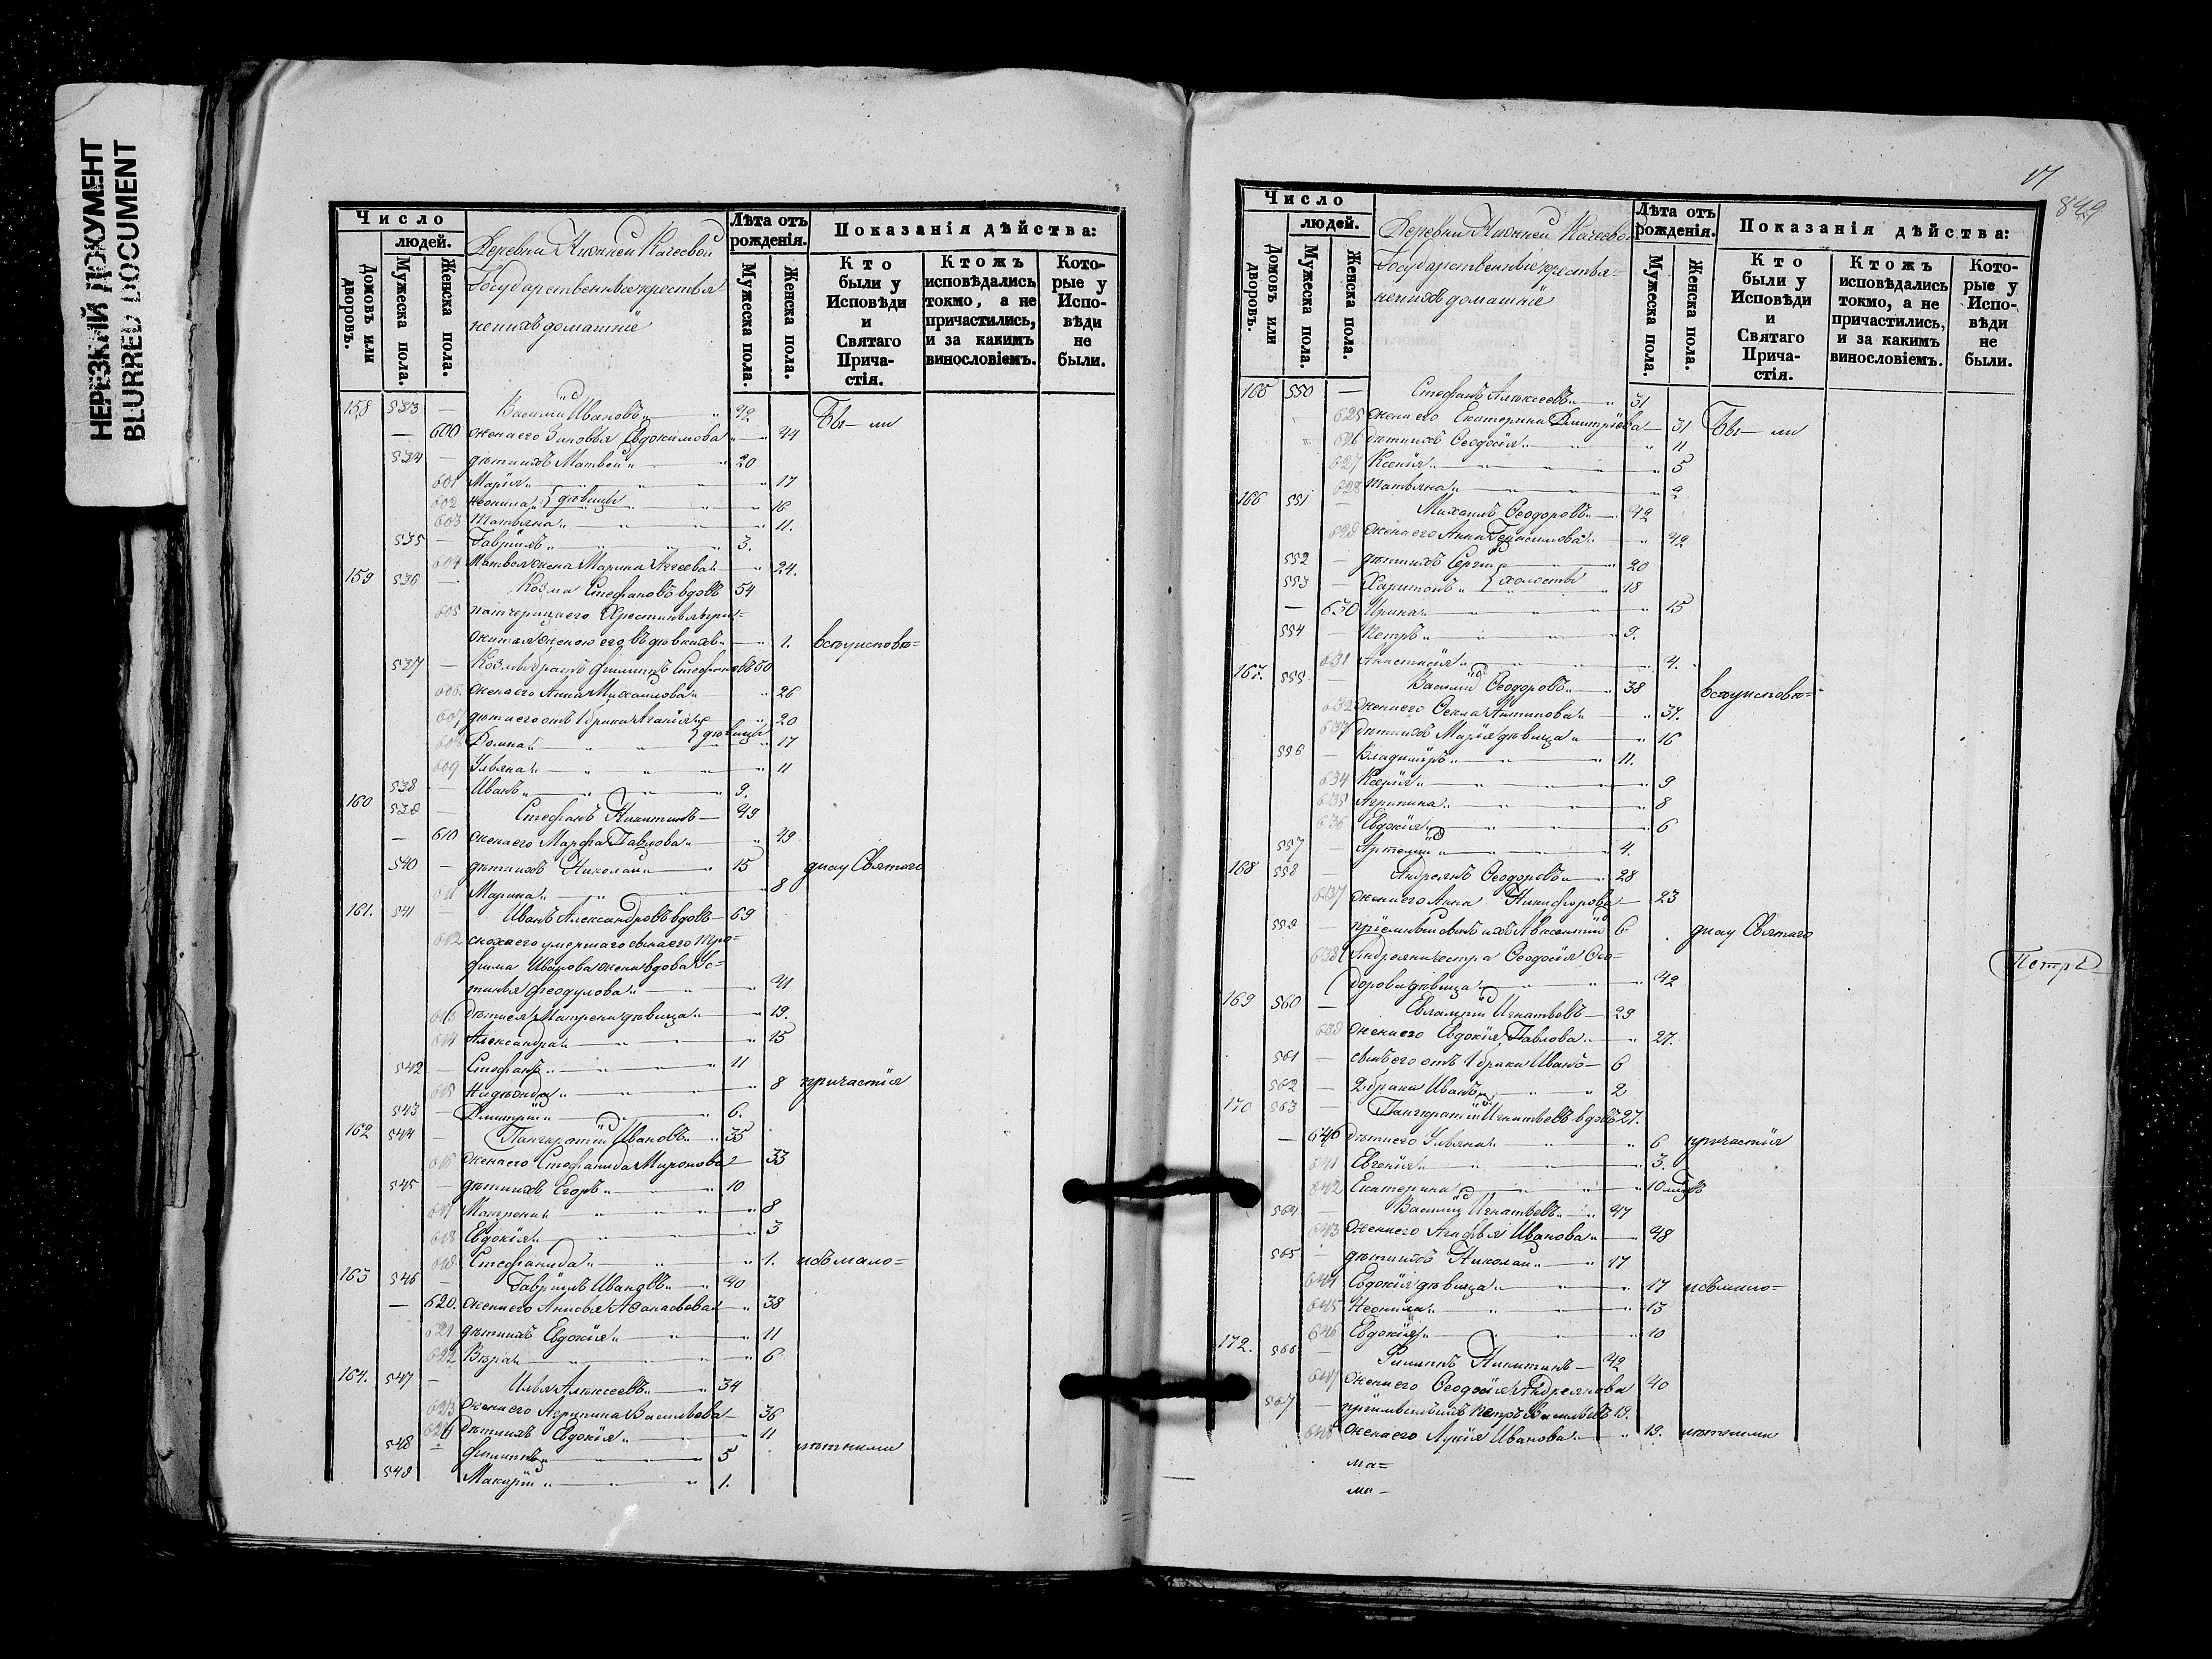 НЕРЕЗКИЙ ДОКУМЕНТ
BLURRED DOCUMENT
Число
людей.
Домовъ или дворовъ.
Мужеска пола.
Женска пола.
Деревни Нижней Качеевой
Государственные крестья
не и ихъ домашніе
Лѣта отъ рожденія.
Мужеска пола.
Женска пола.
Показанія дѣйства:
Кто были у Исповѣди и Святаго Причастія.
Ктожъ исповѣдались токмо, а не причастились, и за какимъ винословіемъ.
Которые у Исповѣди не были.
158 533 — Василий Ивановъ 42 Бы— ли
— 600 жена его Зиновья Евдокимова 44
534 — дѣти ихъ Матвей 20
601 Марія 17
602 Неонила } девицы 16
603 Татьяна 11.
535 — Гавріилъ 3.
604 Матвея жена Марина 24.
159 536 — Козма Стефановъ вдовъ 54
605 падчерица его
1. вси у исповѣ=
537 — Козмы братъ Филиппъ Стефановъ 50
606. жена его Анна Михаилова 26
607 дѣти его отъ 1 брака 20
608 Домна } девицы 17
609 Ульяна 11
538 — Иванъ 9.
160 539 — Стефанъ Никитинъ — 49
— 610 жена его Марфа Павлова 49
540 — дѣти ихъ Николай 15 ди и у Святаго
611 Марина 8
161. 541 — Иванъ Александровъ вдовъ — 69
612 сноха его умершаго сына его Тро=
фима Иванова жена вдова Ус=
тинья Феодулова 41
613 дѣти ея Матрена девица 19.
614 Александра 15
542 — Стефанъ 11
615 Надежда 8 причастія
543 — Димитрій 6.
162 544 — Панкратій Ивановъ 35
616 жена его Стефанида Миронова 33
545 — дѣти ихъ Егоръ 10
617 Матрена 8
618 Евдокія 3
619 Стефанида 1. и съ мало=
163 546 — Гавріилъ Ивановъ 40
— 620. жена его Анисья Афанасьева 38
621 дѣти ихъ Евдокія 11
622 Вѣра 6
164. 547 — Илья Алексеевъ 34
623 жена его Агрипина Васильева — 36
624 дѣти ихъ Евдокія 11
548 — Филиппъ 5 лѣтними
549 Макарій 1.
17
849
Число
людей.
Домовъ или дворовъ.
Мужеска пола.
Женска пола.
Деревни Нижней Качеевой
Государственные крестья=
не и ихъ домашніе
Лѣта отъ рожденія.
Мужеска пола.
Женска пола.
Показанія дѣйства:
Кто были у Исповѣди и Святаго Причастія.
Ктожъ исповѣдались токмо, а не причастились, и за какимъ винословіемъ.
Которые у Исповѣди не были.
165 550 — Стефанъ Алексеевъ 31
625 жена его Екатерина Димитріева 31 Бы— ли
626 дѣти ихъ Феодосія 11
627 Ксенія 5
628 Татьяна 2
166 551 — Михаилъ Феодоровъ 42
629 жена его Анна Герасимова 42
552 — дѣти ихъ Сергій 20
553 — Харитонъ } холосты 18
— 630 Ирина 15
554 — Петръ 9.
631 Анастасія 4.
167. 555 — Василий Феодоровъ 38 вси у исповѣ=
632 жена его Фекла Антипова 37.
633 дѣти ихъ Марія девица 16
556 — Владиміръ 11.
634 Ксенія 9
635 Агрипина 8
636 Евдокія 6
557 — Артемій 4.
168 558 — Андреянъ Феодоровъ 28
637 жена его Анна Никифорова — 23
559 — пріемный сынъ ихъ Авксентій 6 ди и у Святаго
638 Андреяна сестра Феодосія Фео=
дорова девица 42
Петръ
169 560 — Евлампій Игнатьевъ 29
639 жена его Евдокія Павлова 27.
561 — сынъ его отъ 1 брака Иванъ — 6
562 — 2 брака Иванъ 2
170 563 — Панкратій Игнатьевъ вдовъ 27.
— 640 дѣти его Ульяна 6 причастія
641 Евгенія 3.
642 Екатерина 10 мѣсяцъ
564 — Василий Игнатьевъ 47
643 жена его Агафья Иванова 48
565 — дѣти ихъ Николай 17
644 Евдокія девица 17 и съ мало=
645 Неонила 13
646 Евдокія 10
172. 566 — Филиппъ Никитинъ — 42
647 жена его Феодосія Андреянова 40
567 — пріемышъ ихъ Петръ Васильевъ 19.
648 жена его Лукія Иванова 19. лѣтними
ма=
ма—